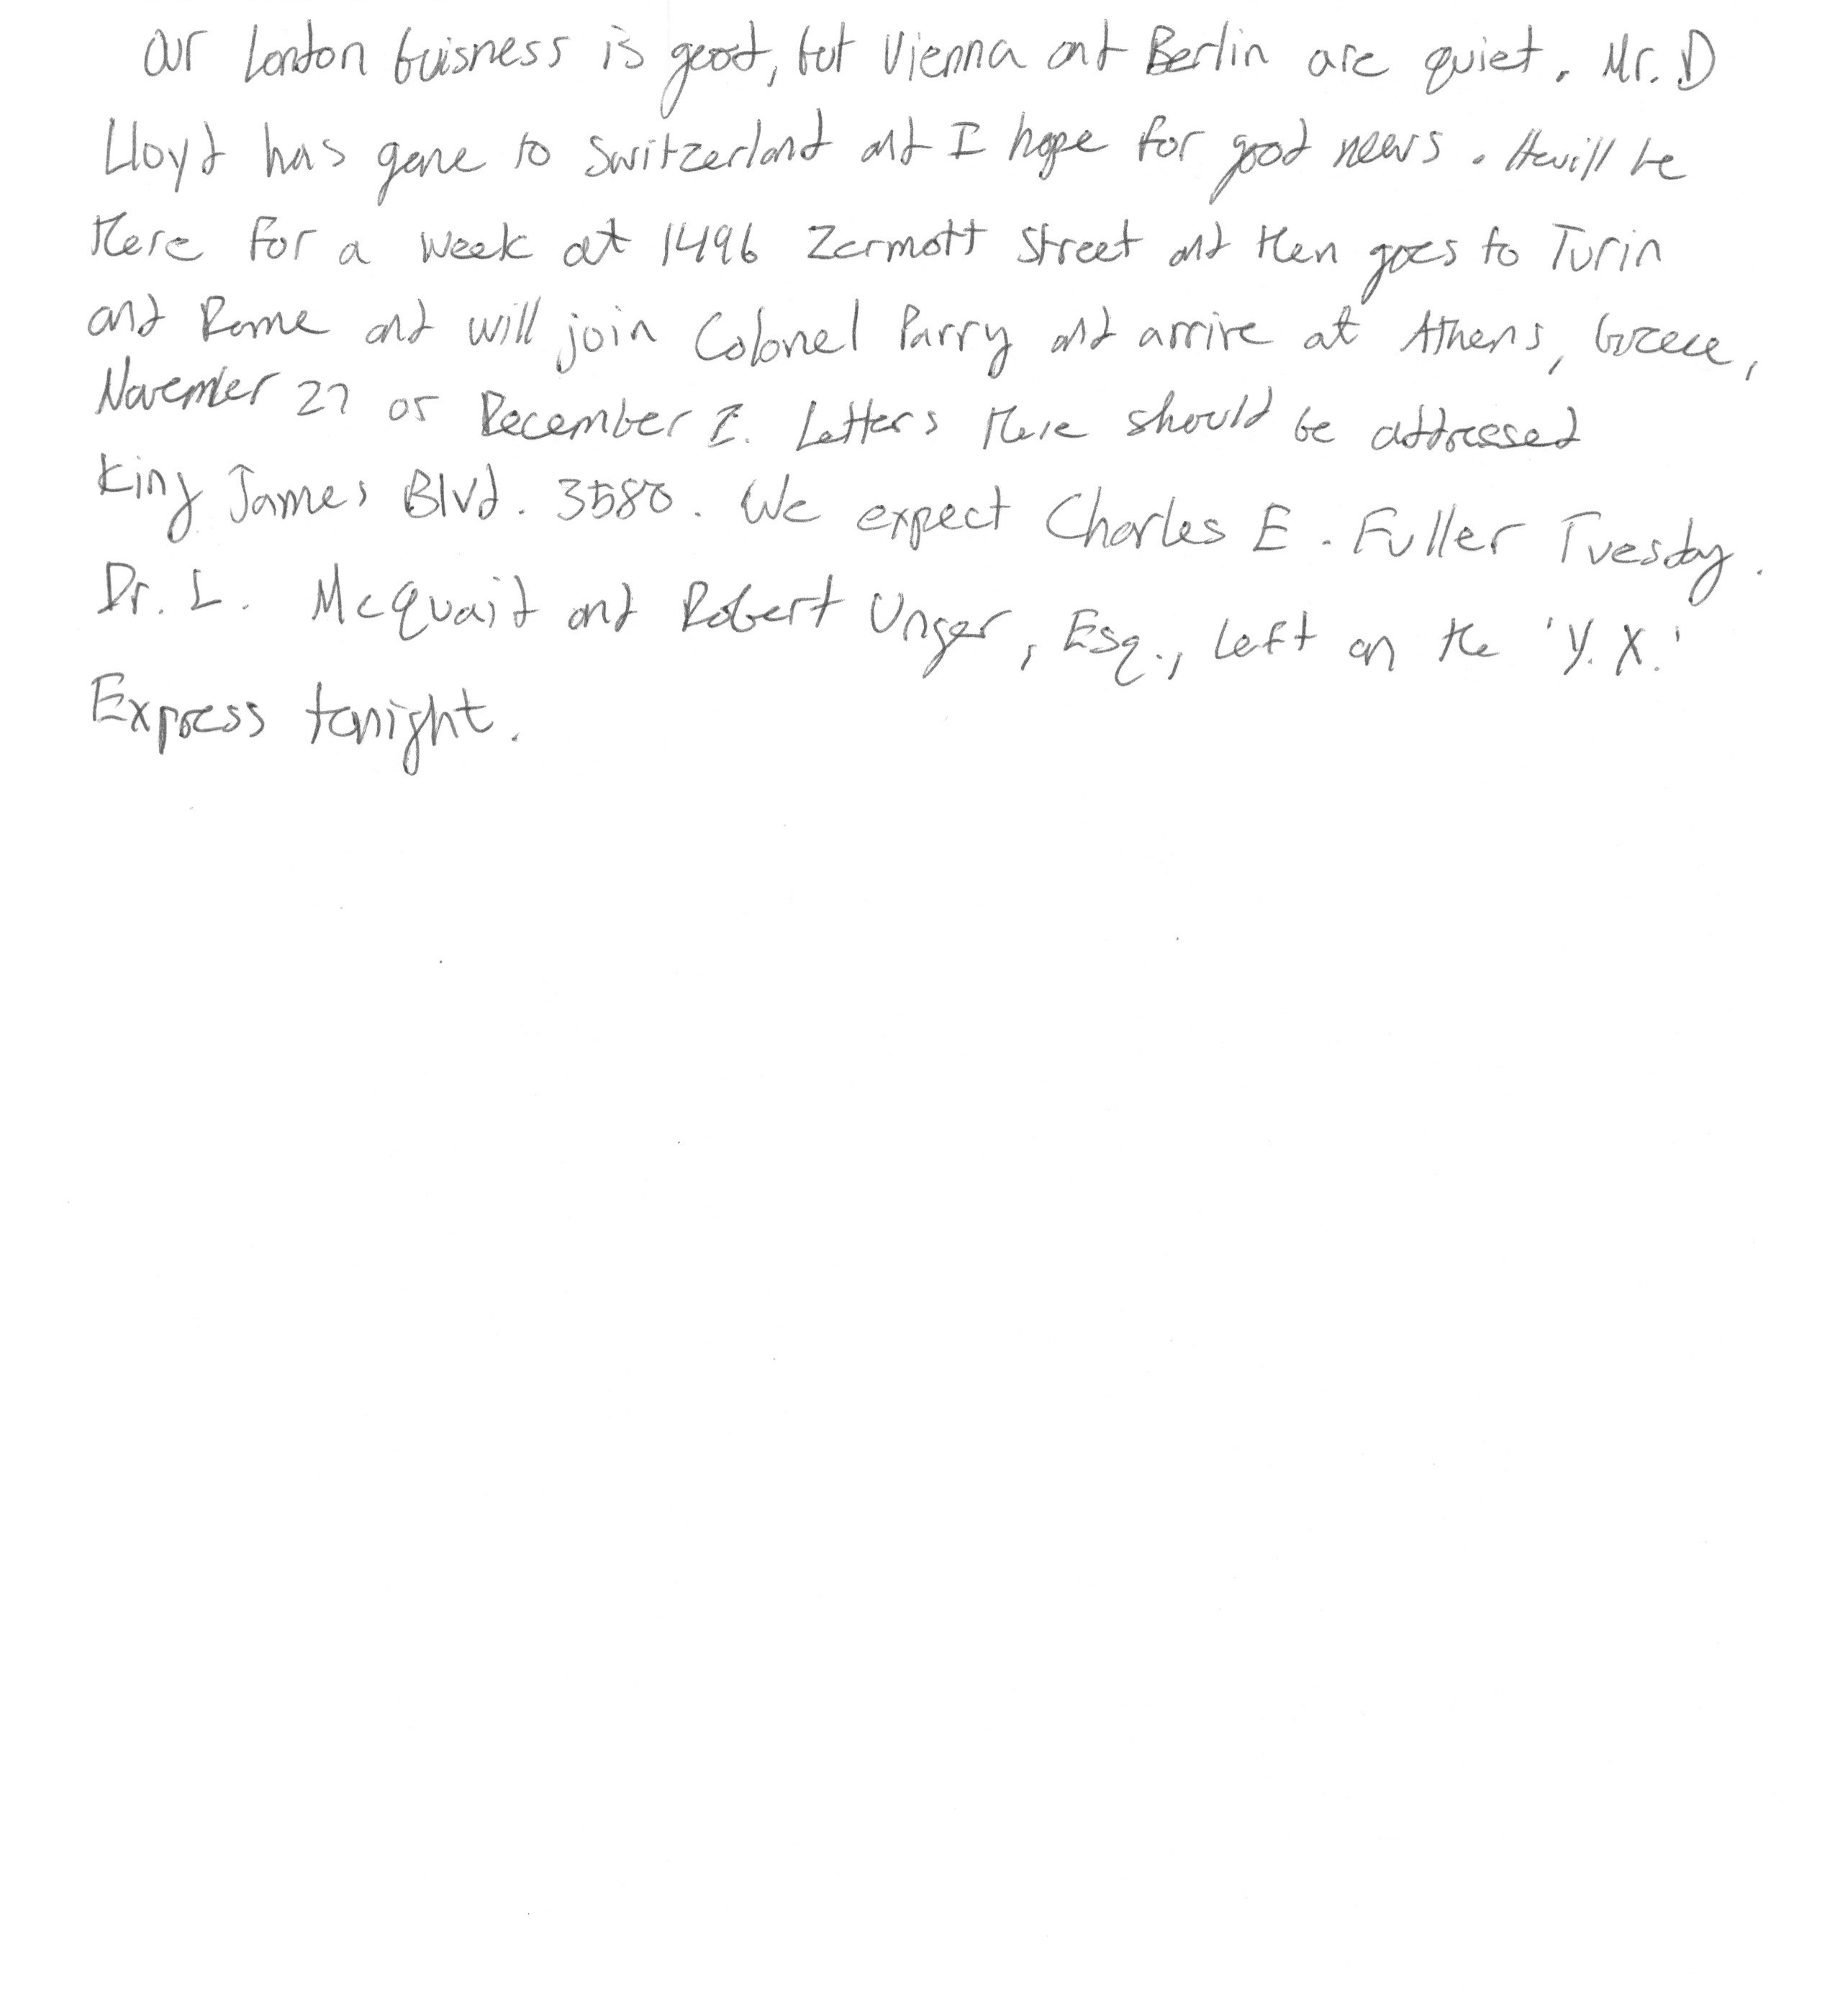 Our London buisness is good, but Vienna and Berlin are quiet. Mr. D
Lloyd has gone to Switzerland and I hope for good news. He will be
there for a week at 1496 Zermott Street and then goes to Turin
and Rome and will join Colonel Parry and arrive at Athens, Greece,
November 27 or December 2. Letters there should be addressed
King James Blvd. 3580. We expect Charles E. Fuller Tuesday.
Dr. L. McQuaid and Robert Unger, Esq., left on the 'Y.X.'
Express tonight.